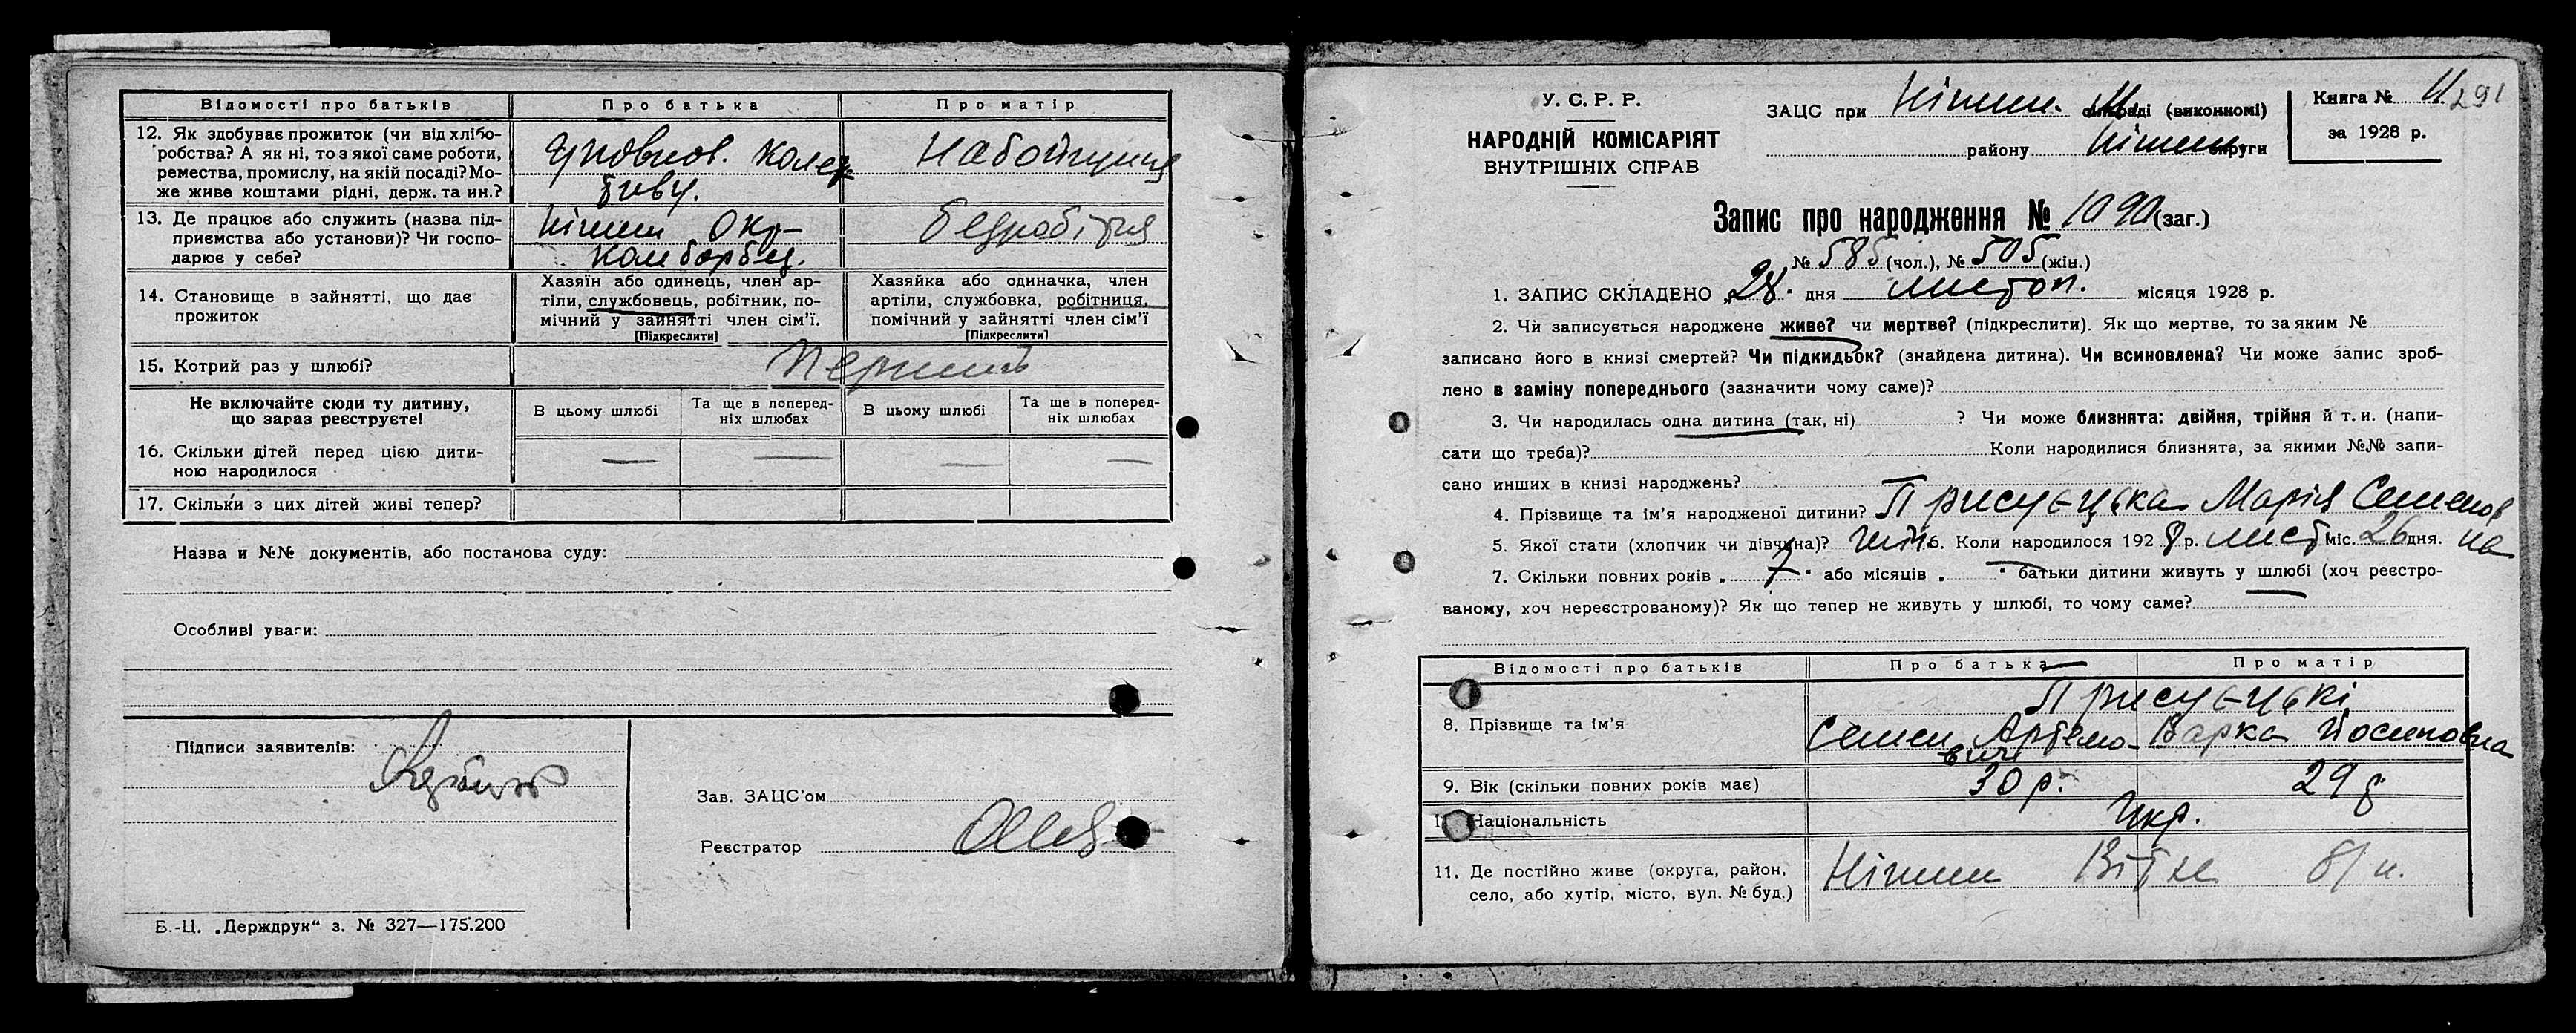 Відомості про батьків
Про батька
Про матір
12. Як здобуває прожиток (чи від хлібо-
робства? А як ні, то з якої саме роботи,
ремества, промислу, на якій посаді? Мо-
же живе коштами рідні, держ. та ин.?
Уповнов. колек
тиву.
Набойщиця
13. Де працює або служить (назва під-
приємства або установи)? Чи госпо-
дарює у себе?
Ніжин Окр-
комборбез.
безробітня
14. Становище в зайнятті, що дає
прожиток
Хазяїн або одинець, член ар-
тіли, службовець, робітник, по-
мічний у зайнятті член сім'ї.
[Підкреслити]
Хазяйка або одиначка, член
артіли, службовка, робітниця,
помічний у зайнятті член сім'ї
[Підкреслити]
15. Котрий раз у шлюбі?
Перший
Не включайте сюди ту дитину,
що зараз реєструєте!
В цьому шлюбі
Та ще в поперед-
ніх шлюбах
В цьому шлюбі
Та ще в поперед-
ніх шлюбах
16. Скільки дітей перед цією дити-
ною народилося
— — — —
17. Скільки з цих дітей живі тепер?
Назва и №№ документів, або постанова суду:
Особливі уваги:
Підписи заявителів:
Зав. ЗАЦС'ом
Реєстратор
Б.-Ц. „Держдрук“ з. № 327—175.200
У. С. Р. Р.
НАРОДНІЙ КОМІСАРІЯТ
ВНУТРІШНІХ СПРАВ
ЗАЦС при Ніжин. М. сільраді (виконкомі)
району Ніжин. округи
Книга № 11 291
за 1928 р.
Запис про народження № 1090 (заг.)
№ 585 (чол.), № 505 (жін.)
1. ЗАПИС СКЛАДЕНО „28. дня листоп. місяця 1928 р.
2. Чи записується народжене живе? чи мертве? (підкреслити). Як що мертве, то за яким №
записано його в книзі смертей? Чи підкидьок? (знайдена дитина). Чи всиновлена? Чи може запис зроб-
лено в заміну попереднього (зазначити чому саме)?
3. Чи народилась одна дитина (так, ні) ? Чи може близнята: двійня, трійня й т. и. (напи-
сати що треба)? Коли народилися близнята, за якими №№ запи-
сано инших в книзі народжень?
4. Прізвище та ім'я народженої дитини? Присуєцька Марія Семенов
на
5. Якої стати (хлопчик чи дівчина)? жін. 6. Коли народилося 1928 р. лист міс. 26 дня.
7. Скільки повних років „ 7 “ або місяців „ “ батьки дитини живуть у шлюбі (хоч реєстро-
ваному, хоч нереєстрованому)? Як що тепер не живуть у шлюбі, то чому саме?
Відомості про батьків
Про батька
Про матір
8. Прізвище та ім'я
Присуєцькі
Семен Артемо-
вич
Варка Йосиповна
9. Вік (скільки повних років має)
30 р.
29 р
10. Національність
Укр.
11. Де постійно живе (округа, район,
село, або хутір, місто, вул. № буд.)
Ніжин